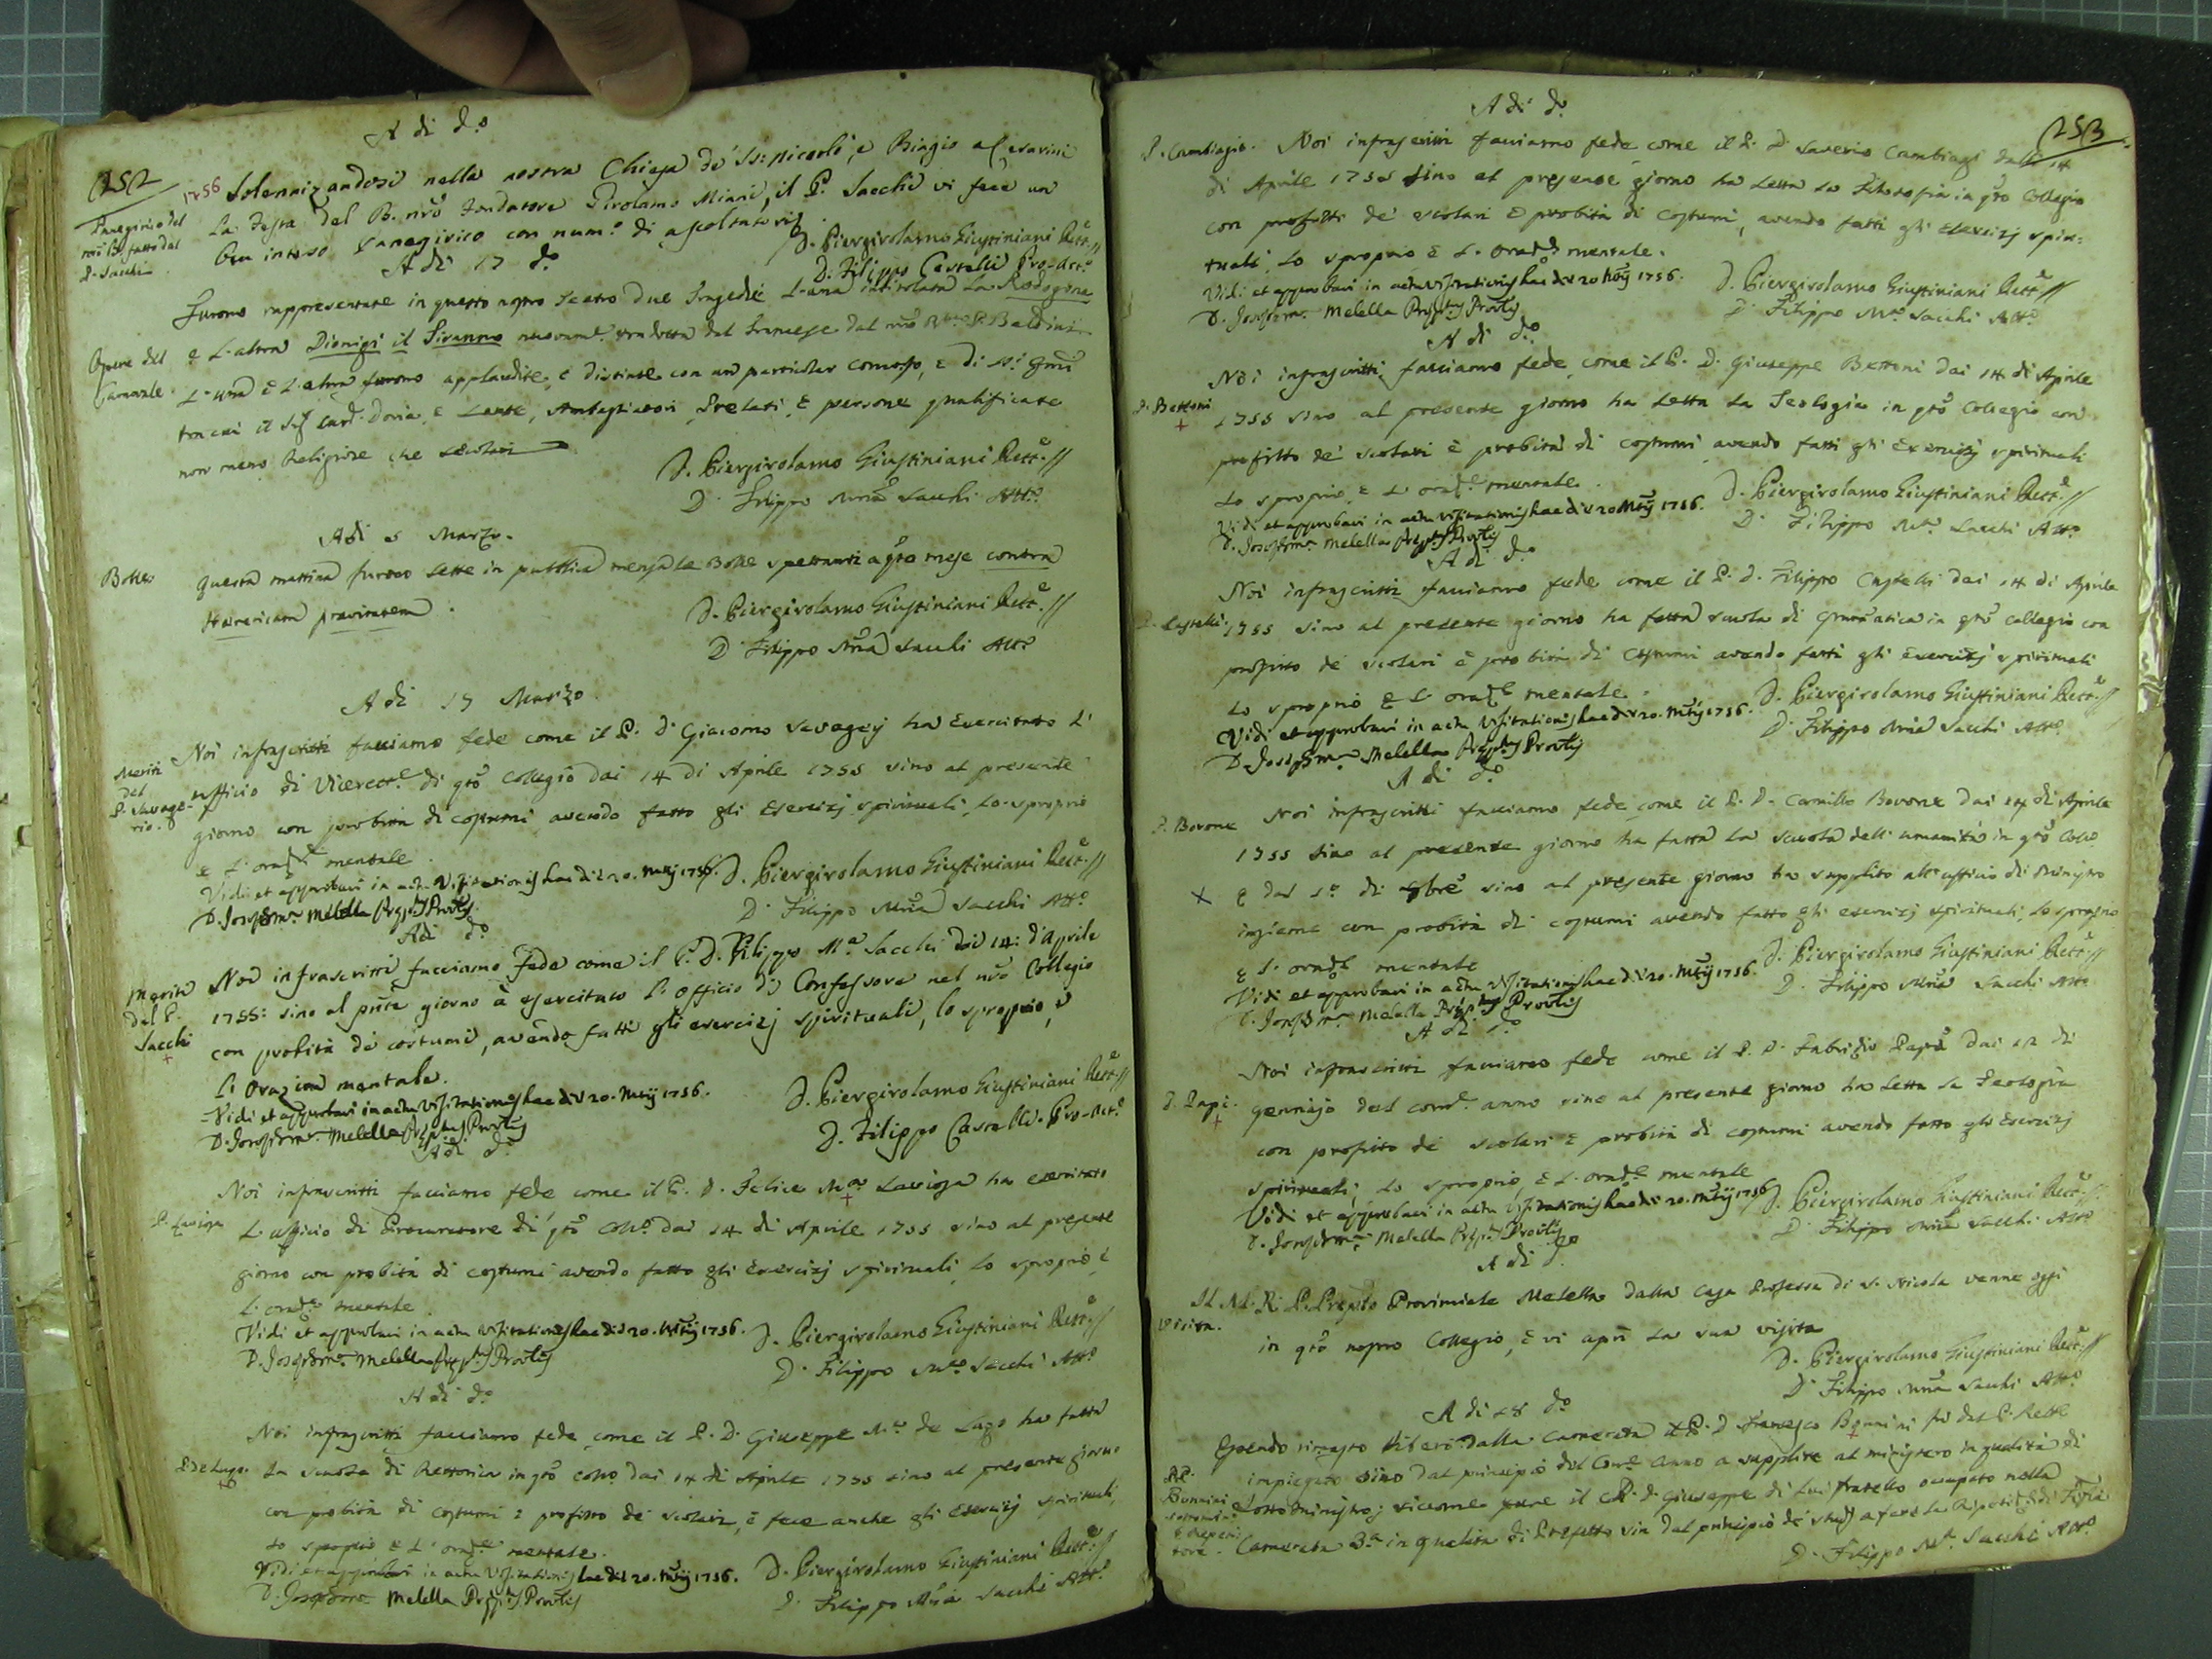 A di d.o
252
1756 Solennizandosi nella nostra Chiesa de' SS: Nicolò, e Biagio a Cesarini
la Festa del B. nr̃o Fondatore Girolamo Miani, il P. Sacchi vi fece un
ben inteso Panegirico con num.o di ascoltatori
Panegirico del
nr̃o B. fatto dal
P. Sacchi
D. Piergirolamo Giustiniani Rett.e
D. Filippo Castelli Pro-Att.o
A di 17 d.o
Furono rappresentate in questo nostro Teatro due Tragedie L'una intitolata La Rodogona
Opere del
Carnevale
e L'altra Dionigi il Tiranno nuovam.e tradotta dal Francese dal nr̃o P. Baldini
L'una e L'altra furono applaudite, e distinte con un particolar concorso, e di Sig.
tra cui il Sig. Card. Doria, e Lante, Ambasciatori, Prelati, e persone qualificate
non meno Religiose che secolari
D. Piergirolamo Giustiniani Rett.e
D. Filippo Mr̃ia Sacchi Att.o
A di 5 Marzo.
Bolle
Questa mattina furono lette in pubblica mensa le Bolle spettanti a q̃to mese contra
Haereticam pravitatem.
D. Piergirolamo Giustiniani Rett.e
D. Filippo Mr̃ia Sacchi Att.o
A di 17 Marzo.
Meriti
del
P. Savage-
rio.
Noi infrascritti facciamo fede come il P. D. Giacomo Savageri ha esercitato L'
ufficio di Vicerett.e di q̃to Collegio dai 14 di Aprile 1755 sino al presente
giorno con probità di costumi avendo fatto gli Esercizj spirituali, lo sproprio
e L'oraz.e mentale.
Vidi et approbavi in actu Visitationis hac die 20. Mr̃ij 1756.
D. Joseph M.a Melella Prep.tus Prov.lis
D. Piergirolamo Giustiniani Rett.e
D. Filippo Mr̃ia Sacchi Att.o
A di d.o
Meriti
del P.
Sacchi
Noi infrascritti facciamo fede come il P. D. Filippo M.a Sacchi dai 14: d'Aprile
1755: sino al pn̄te giorno à esercitato l'officio di Confessore nel nr̃o Collegio
con probità de costumi, avendo fatti gli esercizj spirituali, lo sproprio, e
l'orazion mentale.
Vidi et approbavi in actu Visitationis hac die 20. Mr̃ij 1756.
D. Joseph M.a Melella Prep.tus Prov.lis
D. Piergirolamo Giustiniani Rett.e
D. Filippo Castelli Pro-Att.o
A di d.o
P. Laviosa
Noi infrascritti facciamo fede come il P. D. Felice M.a Laviosa ha esercitato
L'ufficio di Procuratore di q̃to Coll.o dai 14 di Aprile 1755 sino al presente
giorno con probità di costumi avendo fatto gli Esercizj spirituali, lo sproprio, e
L'oraz.e mentale.
Vidi et approbavi in actu Visitationis hac die 20. Mr̃ij 1756.
D. Joseph M.a Melella Prep.tus Prov.lis
D. Piergirolamo Giustiniani Rett.e
D. Filippo M.a Sacchi Att.o
A di d.o
P. de Lugo.
Noi infrascritti facciamo fede come il P. D. Giuseppe M.a de Lugo ha fatta
la scuola di Rettorica in q̃to Coll.o dai 14 di Aprile 1755 sino al presente giorno
con probità di costumi e profitto de' scolari, e fece anche gli Esercizj spirituali,
lo sproprio e L'oraz.e mentale.
Vidi et approbavi in actu Visitationis hac die 20. Mr̃ij 1756.
D. Joseph M.a Melella Prep.tus Prov.lis
D. Piergirolamo Giustiniani Rett.e
D. Filippo Mr̃ia Sacchi Att.o
A di d.o
253
P. Cambiagio.
Noi infrascritti facciamo fede come il P. D. Saverio Cambiagi dalli 14
di Aprile 1755 sino al presente giorno ha letta la Filosofia in q̃to Collegio
con profitto de' scolari e probità di costumi, avendo fatti gli Esercizj spiri-
tuali, lo sproprio e L'oraz.e mentale.
Vidi et approbavi in actu Visitationis hac die 20 Mr̃ij 1756.
D. Joseph M.a Melella Prep.tus Prov.lis
D. Piergirolamo Giustiniani Rett.e
D. Filippo M.a Sacchi Att.o
A di d.o
P. Bettoni
Noi infrascritti facciamo fede come il P. D. Giuseppe Bettoni dai 14 di Aprile
1755 sino al presente giorno ha letta la Teologia in q̃to Collegio con
profitto de' scolari e probità di costumi avendo fatti gli Esercizj spirituali
lo sproprio, e L'oraz.e mentale.
Vidi et approbavi in actu Visitationis hac die 20 Mr̃ij 1756.
D. Joseph M.a Melella Prep.tus Prov.lis
D. Piergirolamo Giustiniani Rett.e
D. Filippo M.a Sacchi Att.o
A di d.o
P. Castelli.
Noi infrascritti facciamo fede come il P. D. Filippo Castelli dai 14 di Aprile
1755 sino al presente giorno ha fatta scuola di Gram̃atica in q̃to Collegio con
profitto de' scolari e probità di costumi avendo fatti gli Esercizj spirituali
lo sproprio e L'oraz.e mentale.
Vidi et approbavi in actu Visitationis hac die 20. Mr̃ij 1756.
D. Joseph M.a Melella Prep.tus Prov.lis
D. Piergirolamo Giustiniani Rett.e
D. Filippo Mr̃ia Sacchi Att.o
A di d.o
P. Bovone
Noi infrascritti facciamo fede come il P. D. Camillo Bovone dai 14 di Aprile
1755 sino al presente giorno ha fatta la scuola dell'umanità in q̃to Coll.o
e dal p.o di 9bre sino al presente giorno ha supplito all'ufficio di Ministro
insieme con probità di costumi avendo fatto gli esercizj spirituali, lo sproprio
e l'oraz.e mentale
Vidi et approbavi in actu Visitationis hac die 20. Mr̃ij 1756.
D. Joseph M.a Melella Prep.tus Prov.lis
D. Piergirolamo Giustiniani Rett.e
D. Filippo Mr̃ia Sacchi Att.o
A di d.o
P. Papi.
Noi infrascritti facciamo fede come il P. D. Fabrizio Papi dai 12 di
gennajo del corr.e anno sino al presente giorno ha letta la Teologia
con profitto de' scolari e probità di costumi avendo fatto gli Esercizj
spirituali, lo sproprio, e L'oraz.e mentale
Vidi et approbavi in actu Visitationis hac die 20. Mr̃ij 1756
D. Joseph M.a Melella Prep.tus Prov.lis
D. Piergirolamo Giustiniani Rett.e
D. Filippo Mr̃ia Sacchi Att.o
A di d.o
Visita.
Il M. R. P. Prep.to Provinciale Melella dalla Casa Professa di S. Nicola venne oggi
in q̃to nostro Collegio, e vi aprì la sua visita
D. Piergirolamo Giustiniani Rett.e
D. Filippo Mr̃ia Sacchi Att.o
A di 18 d.o
PP.
Bonnini
sottomin.o
e Repeti-
tore.
Essendo rimasto libero dalla Camerata il P. D. Francesco Bonnini fù dal P. Rett.e
impiegato sino dal principio del Corr.e anno a supplire al ministero in qualità di
sottoministro; siccome pure il P. D. Giuseppe di lui fratello occupato nella
Camerata 3.a in qualità di Prefetto sin dal principio de' studj a fare la Ripetiz.e di Fisica
D. Filippo M.a Sacchi Att.o